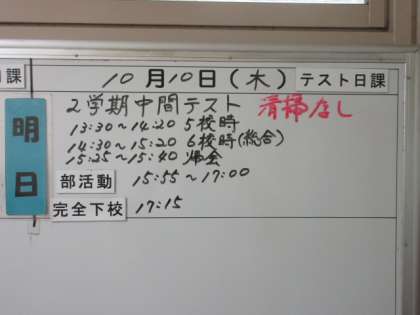 課 10月10日(木) テスト日課
明日
2学期中間テスト 清掃なし
13:30～14:20 5校時
14:30～15:20 6校時(総合)
15:25～15:40 帰会
部活動 15:55～17:00
完全下校 17:15